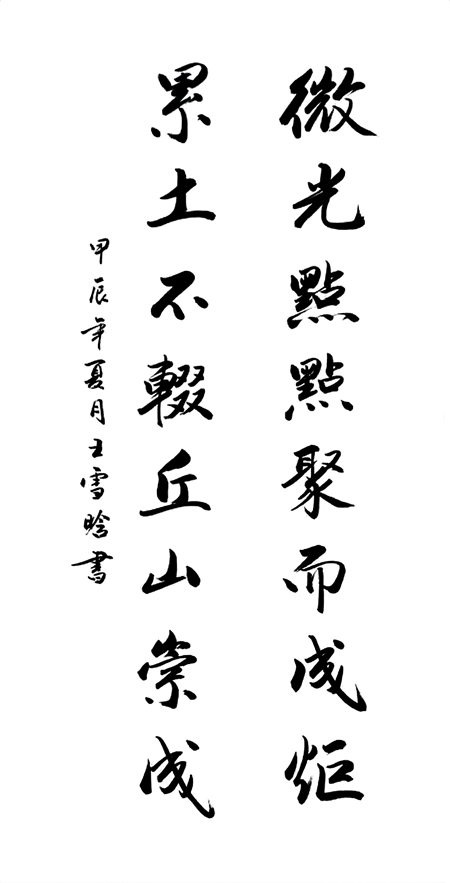 微光點點聚而成炬
累土不輟丘山崇成
甲辰年夏月王雪晗書